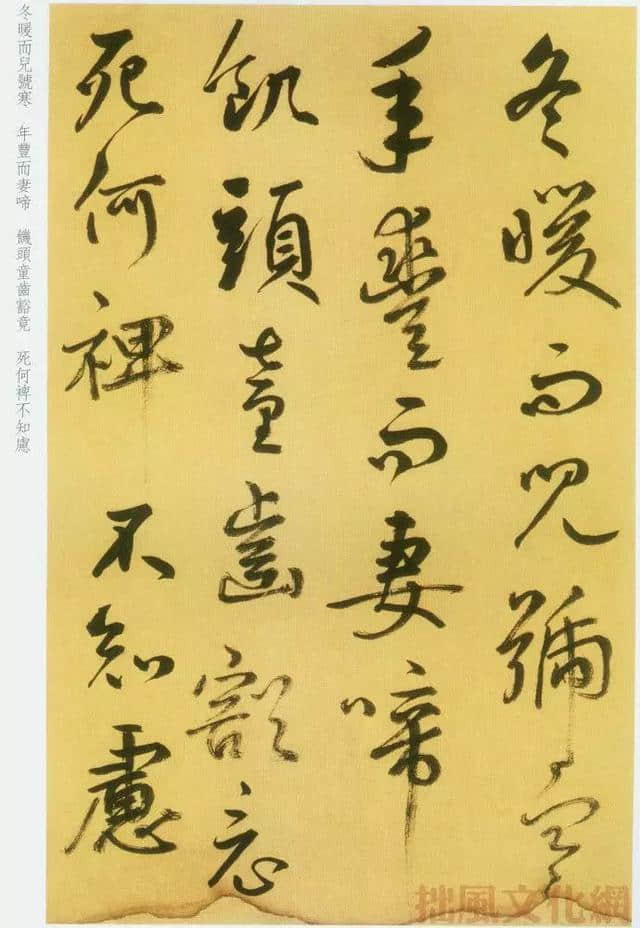 冬暖而兒號寒
年豐而妻啼
飢頭童齒豁竟
死何裨不知慮
冬暖而兒號寒 年豐而妻啼 饑頭童齒豁竟 死何裨不知慮
拙風文化網